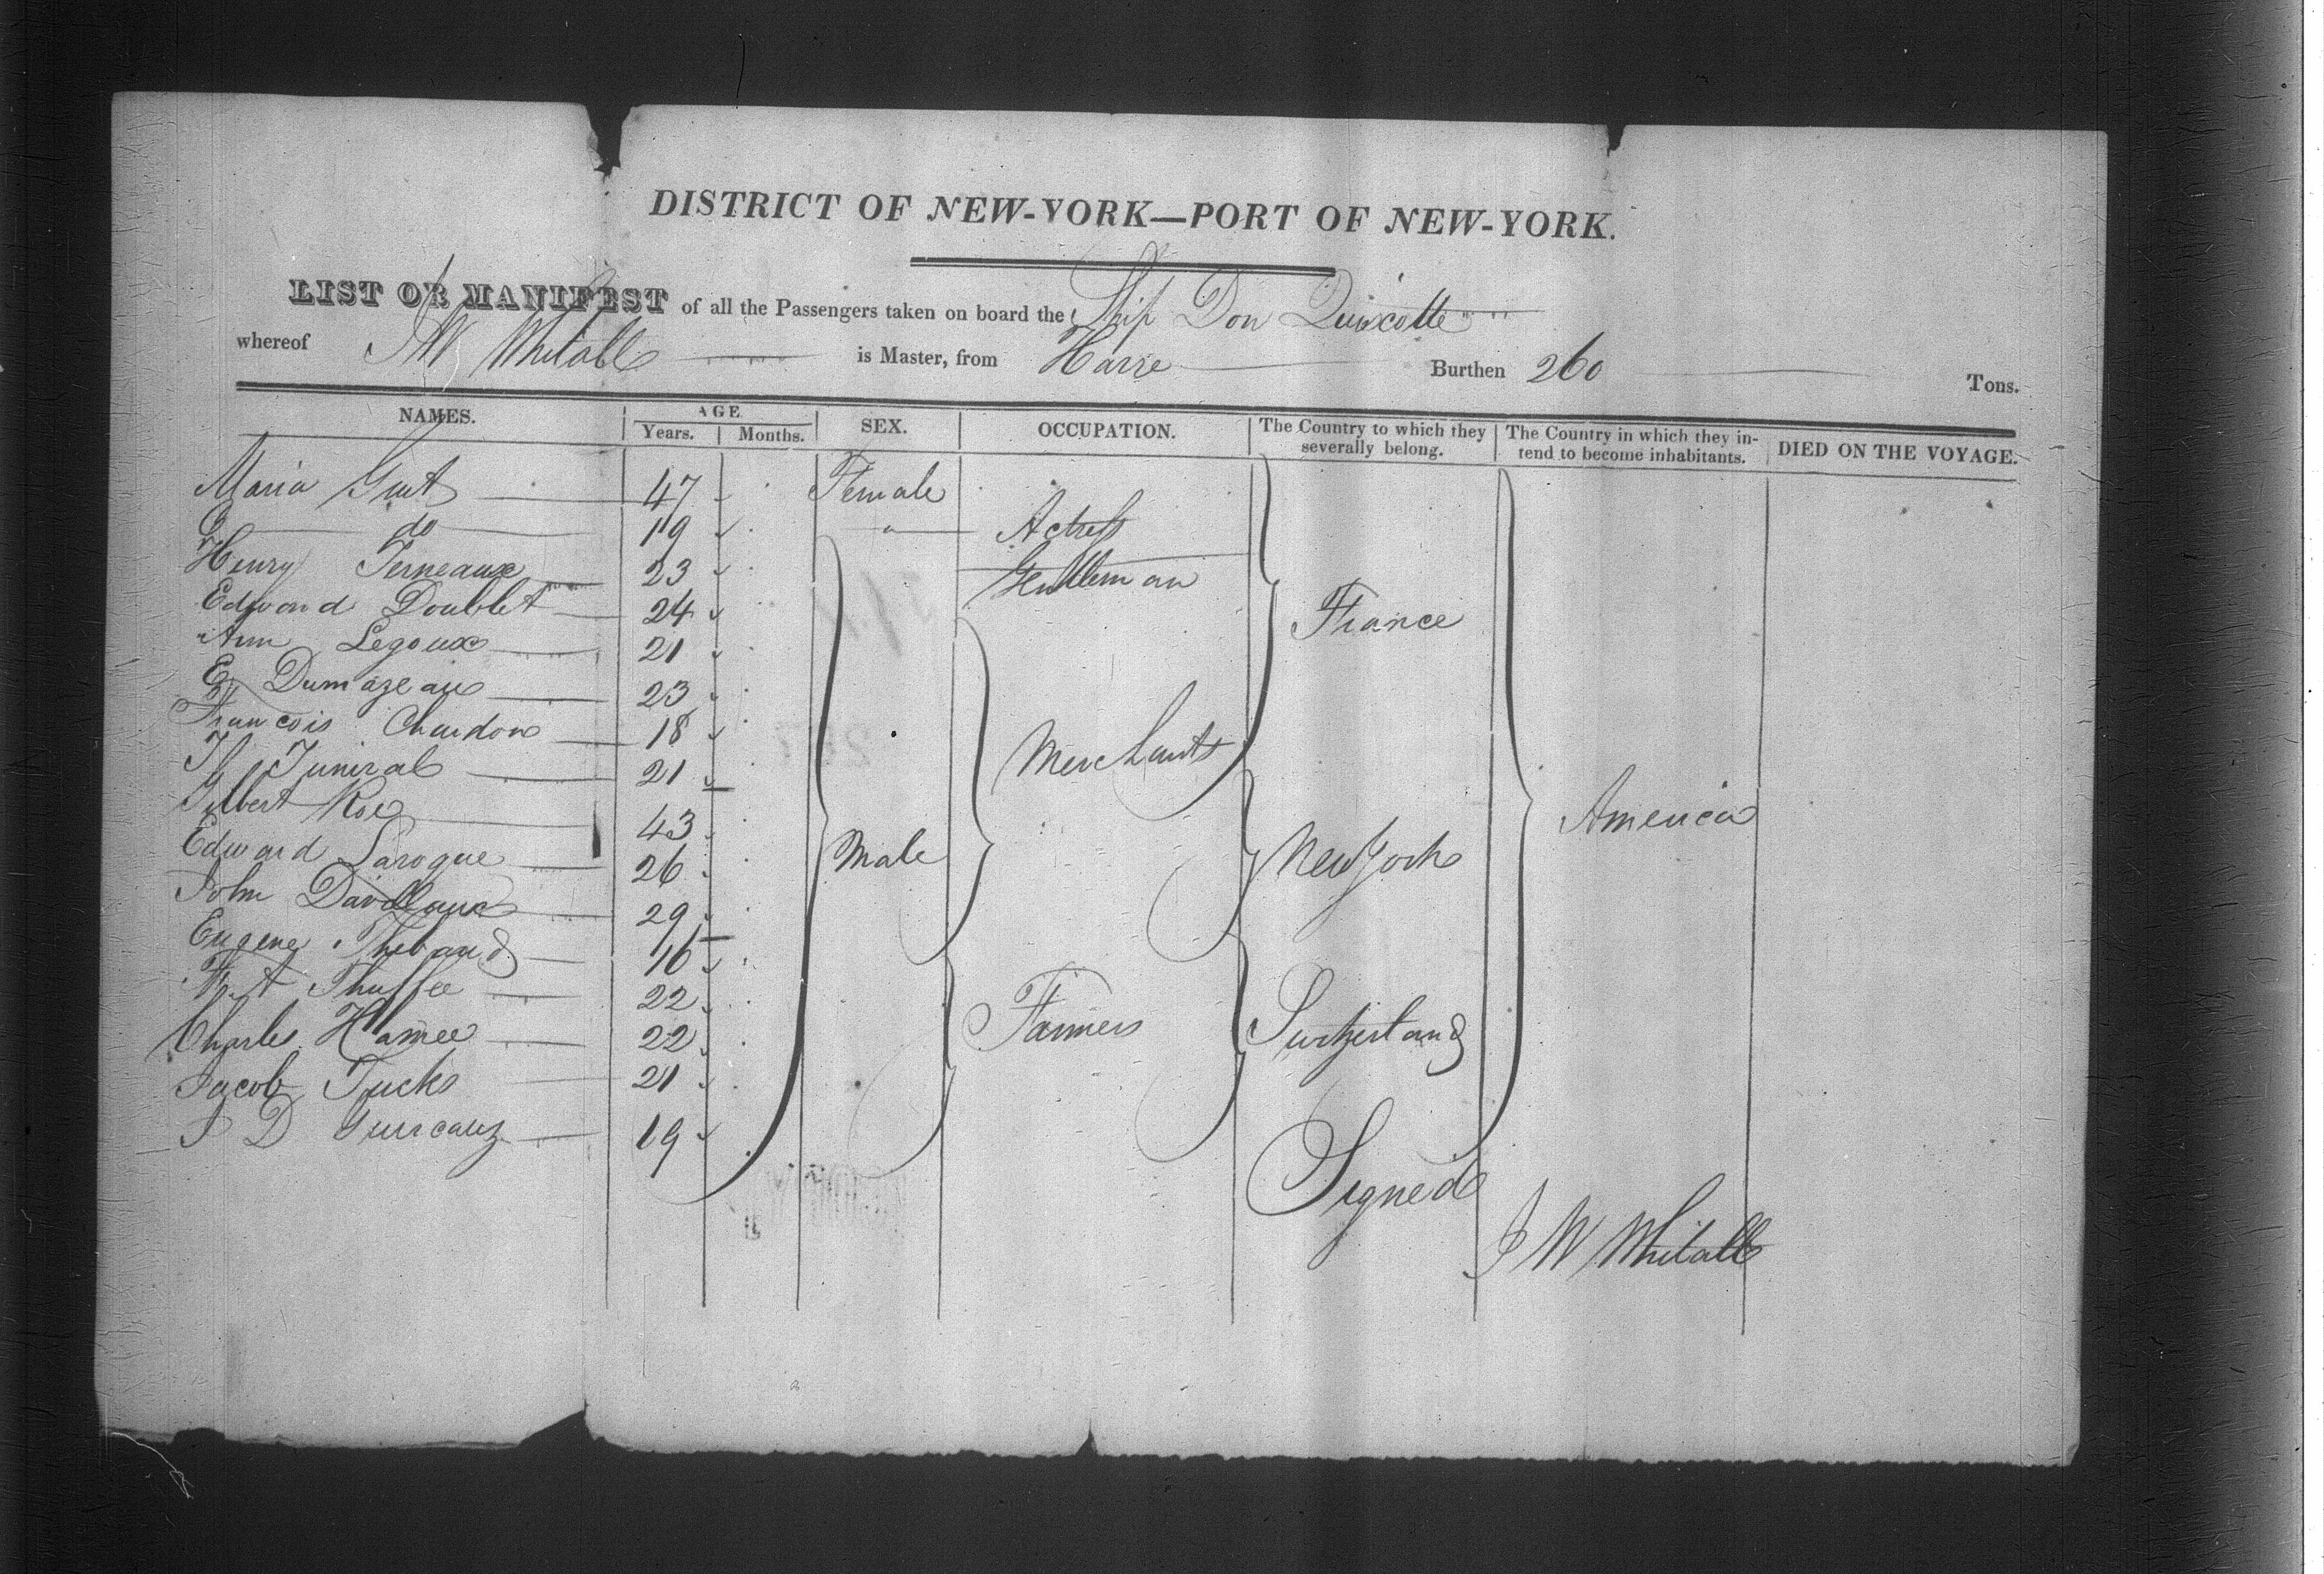 DISTRICT OF NEW-YORK—PORT OF NEW-YORK.
LIST OR MANIFEST of all the Passengers taken on board the Ship Don Quixcotte
whereof J W Whitall is Master, from Havre Burthen 260 Tons.
NAMES. AGE Years. Months. SEX. OCCUPATION. The Country to which they severally belong. The Country in which they intend to become inhabitants. DIED ON THE VOYAGE.
Maria 47 Female
do 19 " Actress
Henry Terneaux 23 Gentleman
Edward Doublet 24 France
Ann Legoux 21
E Dumazeau 23
Francois Chardon 18 Merchants
21
Gilbert Roe 43 America
Edward Laroque 26 Male New York
John 29
Eugene Thebaud 16
22
Charles Hamee 22 Farmers Switzerland
Jacob Tucks 21
J D 19
Signed
J W Whitall